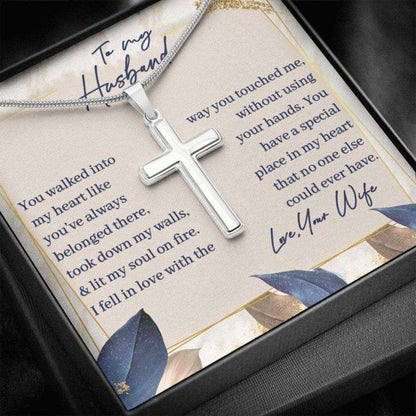 To my
Husband
You walked into
my heart like
you've always
belonged there,
took down my walls,
& lit my soul on fire.
I fell in love with the
way you touched me,
without using
your hands. You
have a special
place in my heart
that no one else
could ever have.
Love, Your Wife